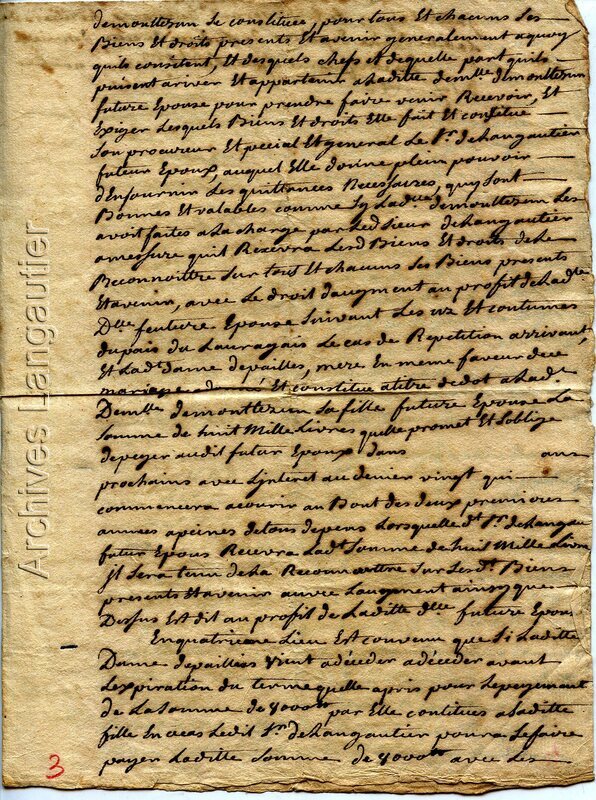 demontlezun se constitüe, pour tous Et chacuns Ses
Biens Et droits presents Et avenir generalement aquoy
quils consistent, Et desquels chefs et dequelle part quils
puissent ariver Et appartenir a Laditte demlle demontlezun
future Epouse pour prendre faire venir Recevoir, Et
Exiger Lesquels Biens Et droits Elle fait Et constitue
Son procureur Et special Et general Le Sr. de Langautier
futeur Epoux, auquel Elle donne plein pouvoir
d'Enfournir Les quittances Necessaires, quy sont
Bonnes Et valables comme sy Lad. demontlezun Les
avoit faites a La charge par Led Sieur de Langautier
amessure quil Recevra Lesd Biens Et droits de Le
Reconnoittre Sur tout Et chacuns Ses Biens presents
Et avenir, avec Le droit daugment au profit de Lad
Dlle feuture Epouse Suivant Les uz Et contumes
du pais du Lauragais Le cas de Repetition arrivant,
Et Lade Dame depailles, mere En meme faveur dece
mariage donné Et constitüe atitre de dot a Lade.
Demlle demontlezun Sa fille future Epouse La
Somme de huit Mille Livres quelle promet Et Soblige
depeyer audit futur Epoux dans ans
prochains avec Linteret au denier vingt qui
commencera acourir au Bout des deux premieres
années apeines detous depens Lorsquelle dt Sr. de Langau
futur Epous Recevra Ladt Somme de huit Mille Livre
Jl Sera tenu de La Reconnoittre Sur Sesd. Biens
presents Et avenir auvec Laugment ainsy que
Dessus Est dit au profit de Laditte dlle future Epous
Enquatrieme Lieu Est convenu que Si Laditte
Dame depailles vient a déceder a déceder avant
Lexpiration du terme quelle apris pour Lepeyemant
de La Somme de par Elle contituée a Laditte
fille En ceas Ledit Sr. de Langautier poura Se faire
payer Laditte Somme de avec Les
3
Archives Langautier